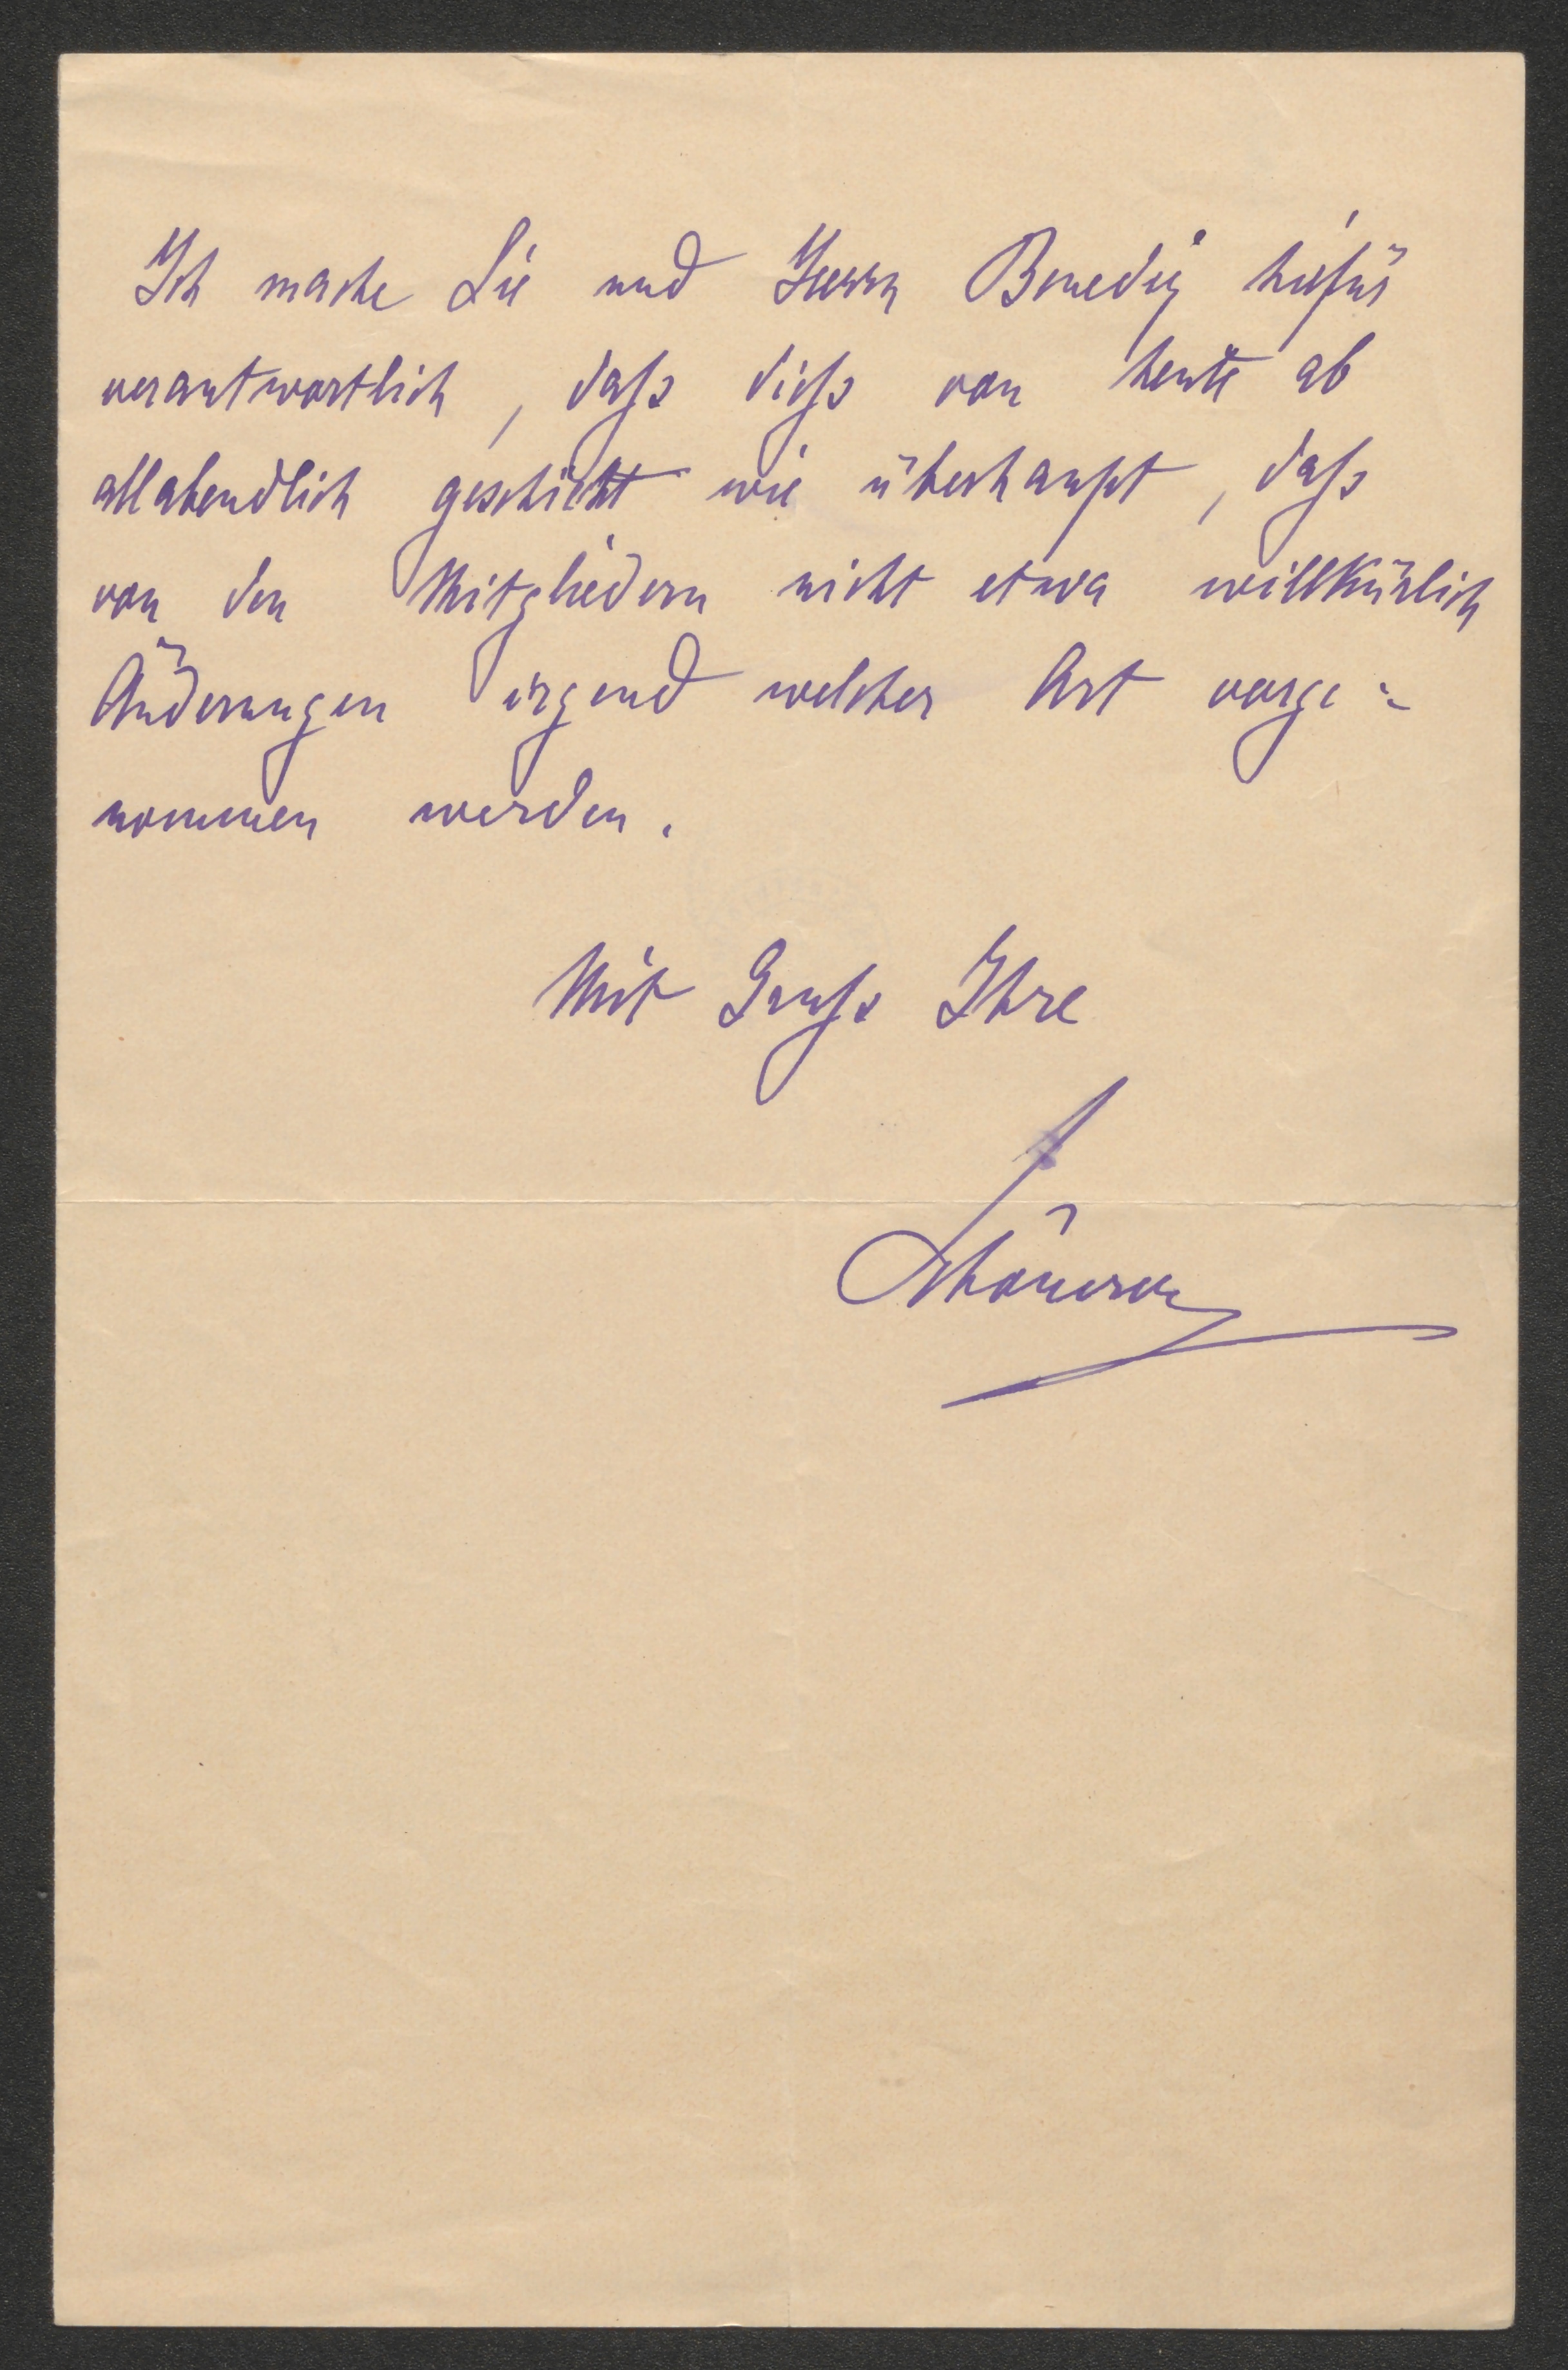 Ich mache Sie und Herrn Benedix hiefür
verantwortlich, dass diess von heute ab
allabendlich geschieht wie überhaupt, dass
von den Mitgliedern nicht etwa willkürlich
Änderungen irgend welcher Art vorge-
nommen werden.
Mit Gruss Ihre
Schönerer